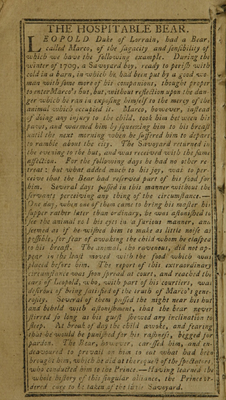 THE HOSPITABLE BEAR.
LEOPOLD Duke of Lorrain, had a Bear,
called Marco, of the sagacity and sensibility of
which we have the following example. During the
winter of 1709, a Savoyard boy, ready to perish with
cold in a barn, in which he had been put by a good wo-
man with some more of his companions, thought proper
to enter Marco's hut, without reflection upon the dan-
ger which he ran in exposing himself to the mercy of the
animal which occupied it. Marco, however, instead
of doing any injury to the child, took him between his
paws, and warmed him by squeezing him to his breast
until the next morning when he suffered him to depart
to ramble about the city. The Savoyard returned in
the evening to the hut, and was received with the same
affection. For the following days he had no other re-
treat: but what added much to his joy, was to per-
ceive that the Bear had reserved part of his food for
him. Several days passed in this manner without the
servants perceiving any thing of the circumstance.—
One day, when one of them came to bring his master his
supper rather later than ordinary, he was astonished to
see the animal roll his eyes in a furious manner, and
seemed as if he wished him to make as little noise as
possible, for fear of awaking the child whom he clasped
to his breast. The animal, tho ravenous, did not ap-
pear in the least moved with the food which was
placed before him. The report of this extraordinary
circumstance was soon spread at court, and reached the
ears of Leopold, who, with part of his courtiers, was
desirous of being satisfied of the truth of Marco's gene-
rosity. Several of them passed the night near his hut
and beheld with astonishment, that the bear never
stirred so long as his guest shewed any inclination to
sleep. At break of day the child awoke, and fearing
that he would be punished for his rashness, begged for
pardon. The Bear, however, caressed him, and en-
deavoured to prevail on him to eat what had been
brought him, which he did at the request of the spectators
who conducted him to the Prince.—Having learned the
whole history of this singular alliance, the Prince or-
dered care to be taken of the little Savoyard.